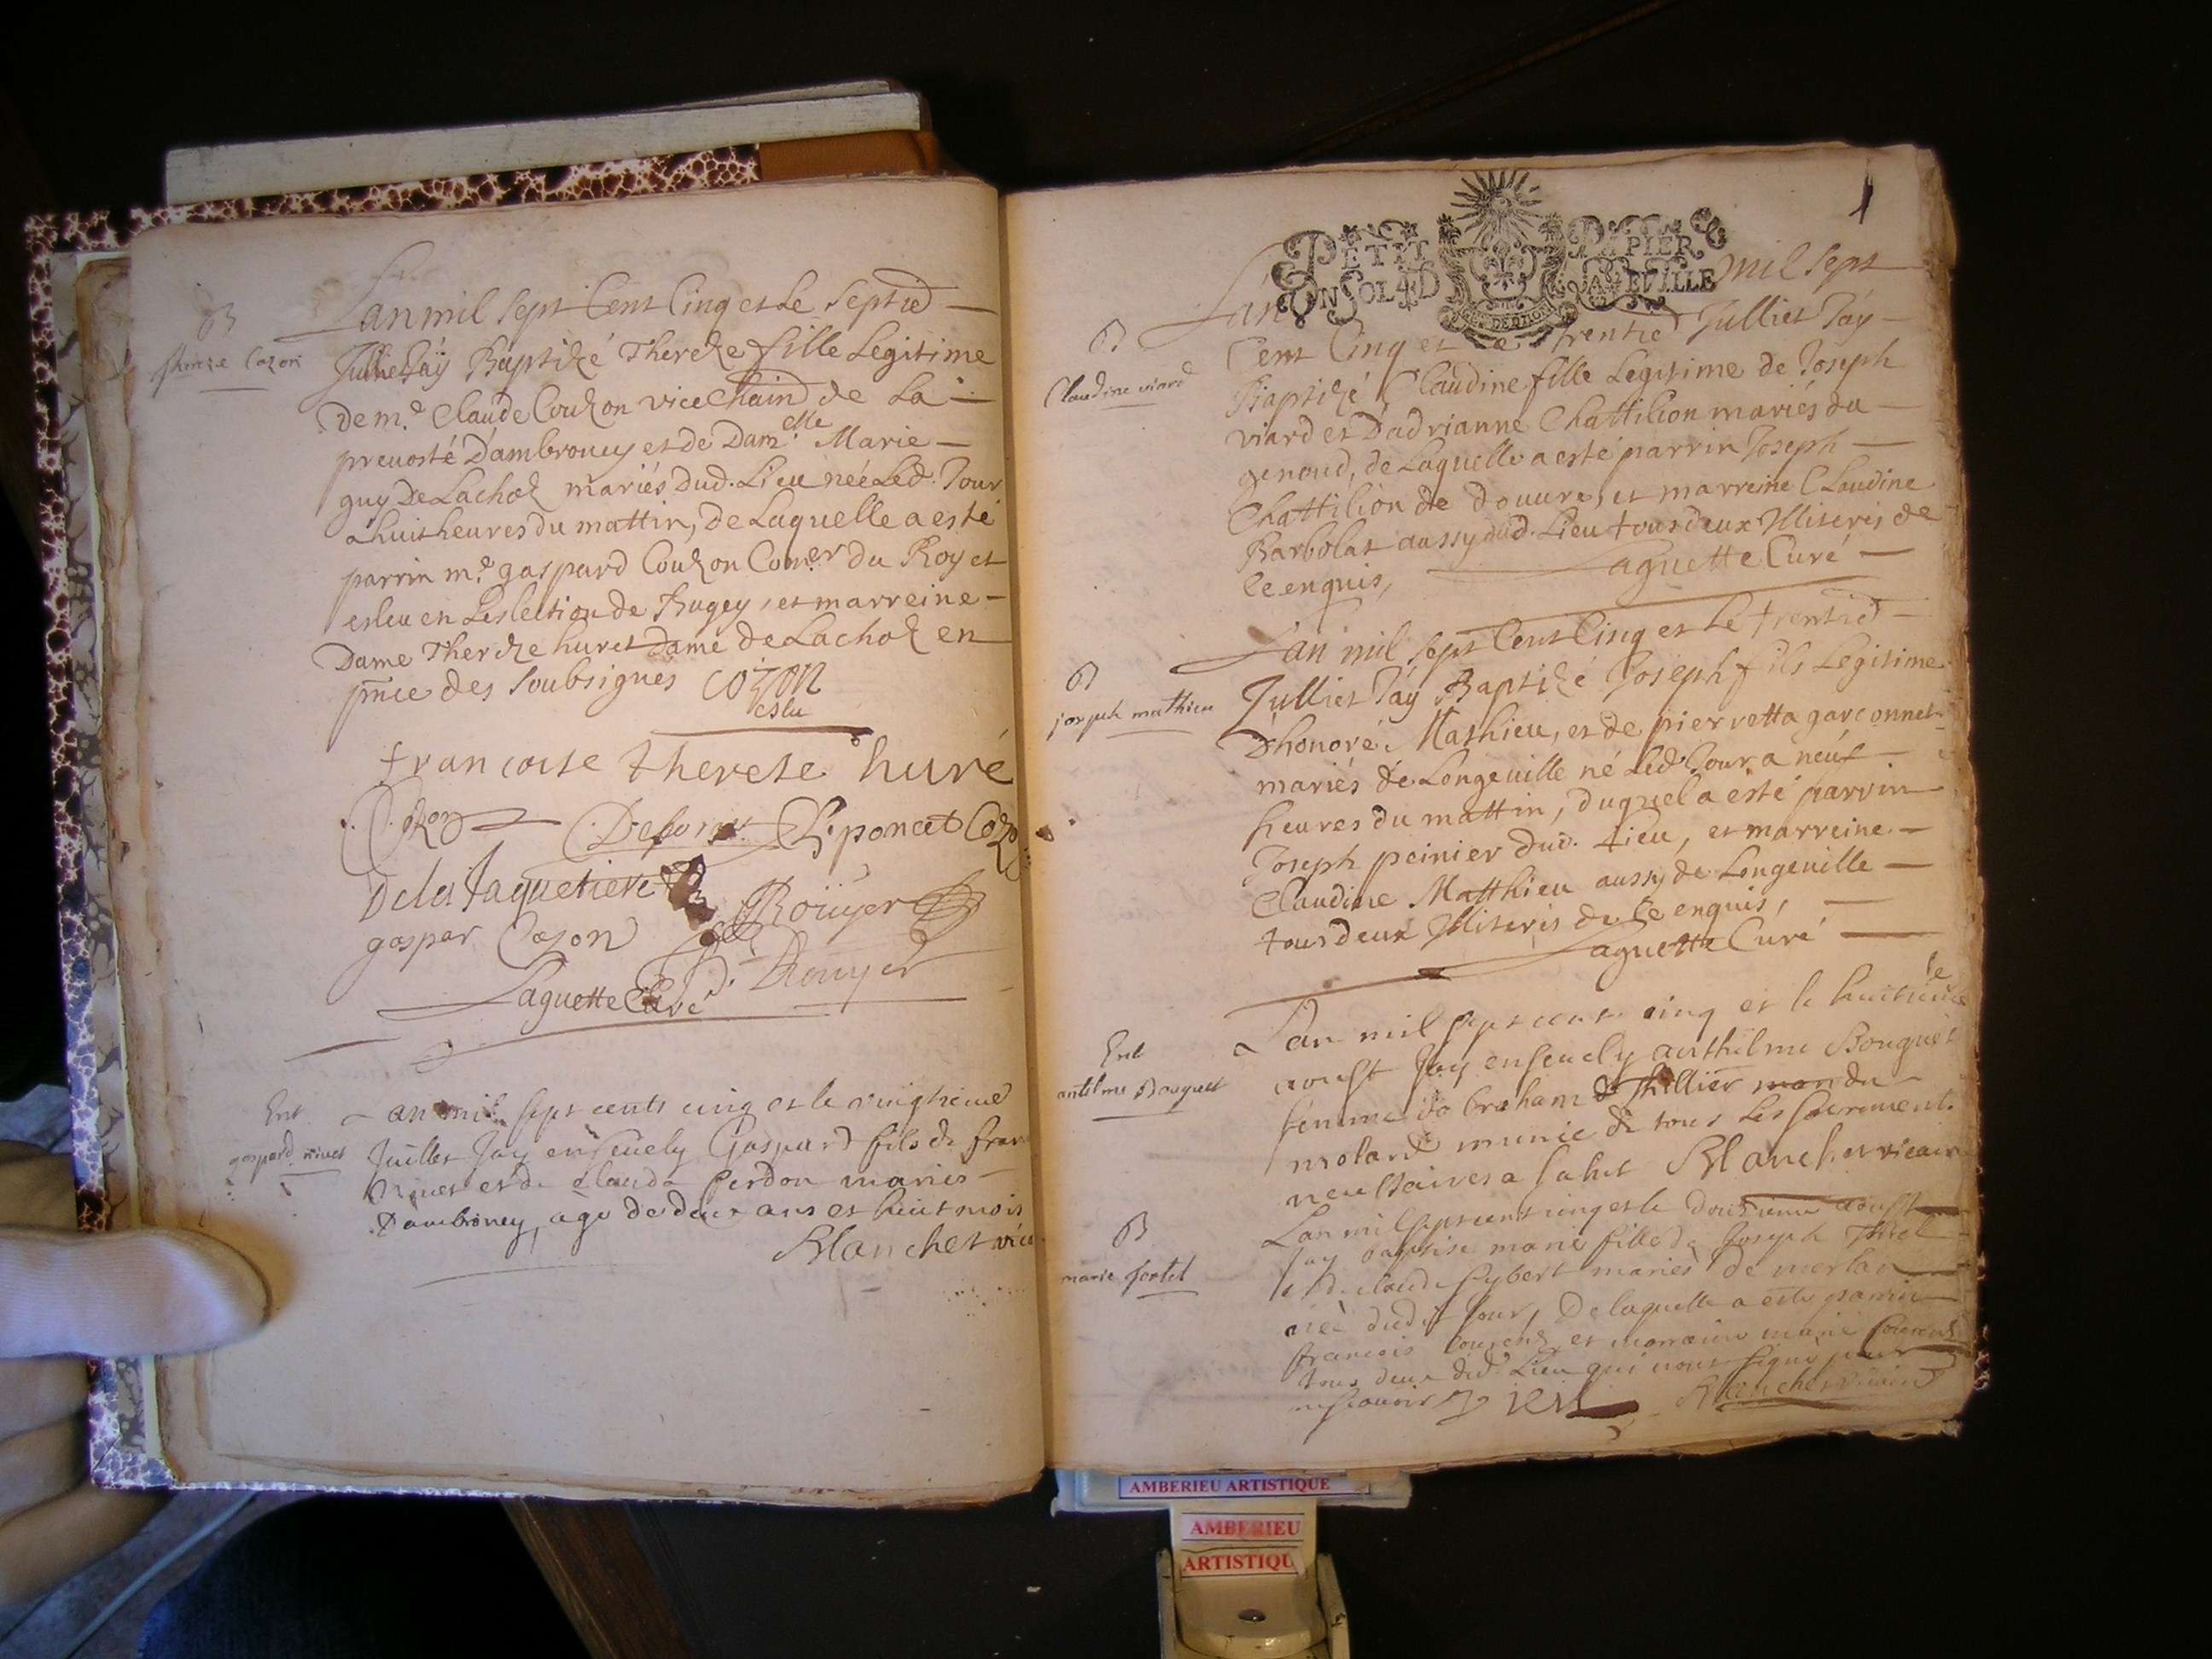 B
Lan mil sept Cent Cinq et Le septie
Juillet Jáy Baptizé Therese fille Legitime
de m.e Claude Couzon vice Chain de La
preuosté D'ambroney et de Dam.elle Marie
guy De Lachoz mariés dud. Lieu née Led. Jour
a huit heures du mattin, de Laquelle a esté
parrin m.e gaspard Couzon Con.er du Roy et
esleu en Leslection de Bugey, et marreine
Dame Thereze huret Dame de Lachoz en
pnce des soubsignes cozon
eslu
francoise therese huré
Cozon Li poncet
gaspar Cozon Roüyer
Laguette Curé Roüyer
Ent
gaspard
an mil sept cents cinq et le vingtieme
Juillet Jay enseuely Gaspard fils de fran
et de clauda perdon maries
Dambroney, age de deux ans et huit mois
Blanchet vic
1
PETIT PAPIER
UN SOL 4 D LA FEVILLE
B
Claudine viard
Lan mil sept
Cent Cinq et Le trentie Julliet Jáy
Baptizé Claudine fille Legitime de Joseph
viard et D'adrianne Chattilion mariés du
genoud, de Laquelle a esté parrin Joseph
Chattilion de douure, et marreine Claudine
Barbolat aussy dud. Lieu tous deux Illiteris de
Ce enquis, Laguette Curé
B
joseph mathieu
Lan mil sept Cent Cinq et Le trentie
Julliet Jáy Baptizé Joseph fils Legitime
D'honoré Mathieu, et de pierretta garconnet
mariés de Longeuille né Led. Jour a neuf
heures du mattin, duquel a esté parrin
Joseph peinier dud. Lieu, et marreine
Claudine Matthieu aussy de Longeuille
tous deux Illiteris de Ce enquis,
Laguette Curé
Ent
antelme Bouguet
Lan mil sept cent cinq et le huitieme
aoust Jay enseuely anthelme Bouguet
femme dabraham Thillier du
molard munie de tous Les sacrement
necessaires a salut Blanchet vicair
B
marie
Lan mil sept cent cinq et le douzieme aoust
Jay baptise marie fille de Joseph
et de claude maries de merlan
née dudit Jour, De laquelle a esté parrin
francois et marreine marie
tous deux dud. Lieu qui nont signé pour
ne scauoir Blanchet vicaire
AMBERIEU ARTISTIQUE
AMBERIEU
ARTISTIQU